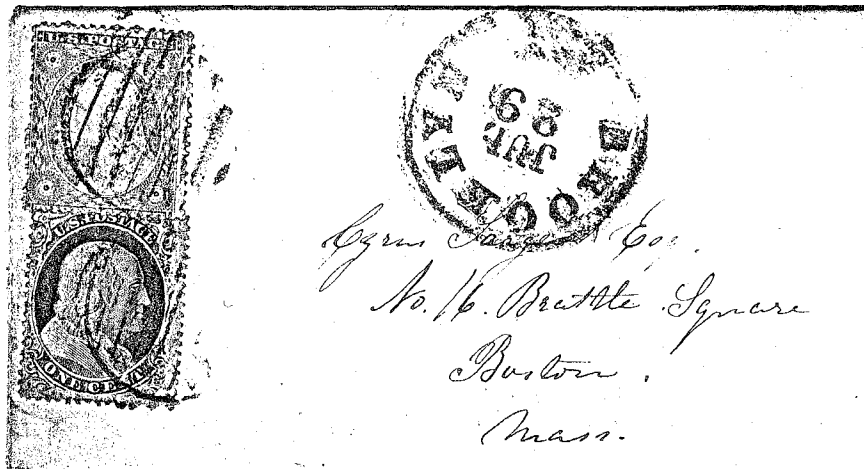 U.S. POSTAGE
U.S. POSTAGE
ONE CENT
JUL
29
Cyrus Sargent Esq.
No. 16. Brattle Square
Boston.
Mass.